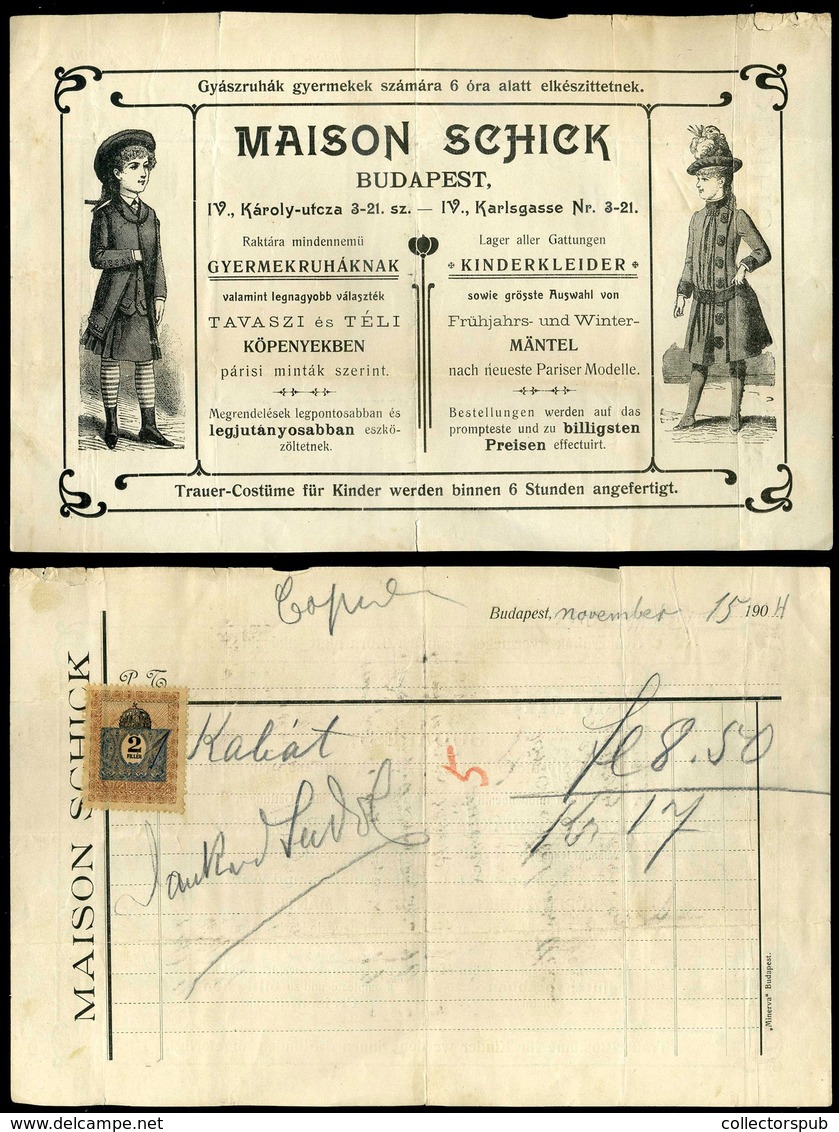 Gyászruhák gyermekek számára 6 óra alatt elkészittetnek.
MAISON SCHICK
BUDAPEST,
IV., Károly-utcza 3-21. sz. — IV., Karlsgasse Nr. 3-21.
Raktára mindennemü
GYERMEKRUHÁKNAK
valamint legnagyobb választék
TAVASZI és TÉLI
KÖPENYEKBEN
párisi minták szerint.
Megrendelések legpontosabban és
legjutányosabban eszkö-
zöltetnek.
Lager aller Gattungen
KINDERKLEIDER
sowie grösste Auswahl von
Frühjahrs- und Winter-
MÄNTEL
nach neueste Pariser Modelle.
Bestellungen werden auf das
prompteste und zu billigsten
Preisen effectuirt.
Trauer-Costüme für Kinder werden binnen 6 Stunden angefertigt.
Budapest, november 15 1904
P. T.
MAISON SCHICK
2
FILLÉR
1 Kabát 8.50
5
Kr 17
„Minerva" Budapest.
collectorspub